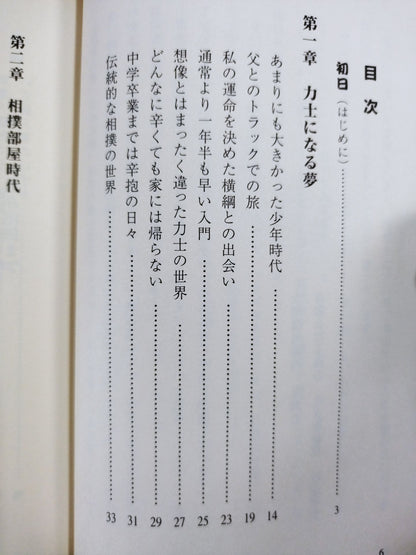 目次
初日（はじめに）……………………………3
第一章　力士になる夢
あまりにも大きかった少年時代……………………………14
父とのトラックでの旅……………………………19
私の運命を決めた横綱との出会い……………………………23
通常より一年半も早い入門……………………………25
想像とはまったく違った力士の世界……………………………27
どんなに辛くても家には帰らない……………………………29
中学卒業までは辛抱の日々……………………………31
伝統的な相撲の世界……………………………33
第二章　相撲部屋時代
6